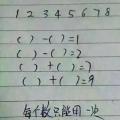 1 2 3 4 5 6 7 8
( ) - ( ) = 1
( ) - ( ) = 2
( ) + ( ) = 7
( ) + ( ) = 9
每个数只能用一次